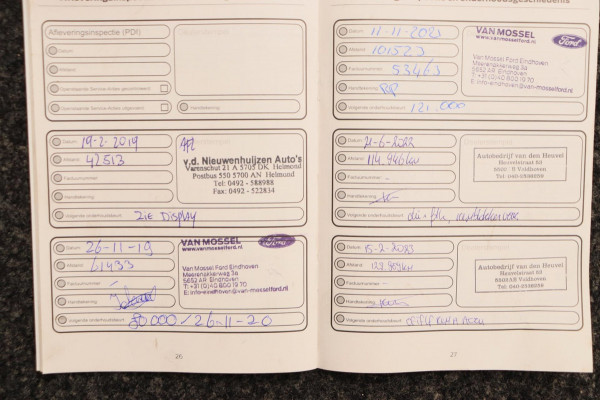 Afleveringsinspectie (PDI)
Datum
Afstand
Handtekening
Datum 19-2-2019
Afstand 42513
Factuurnummer
Handtekening
Volgende onderhoudsbeurt Zie Display
v.d. Nieuwenhuijzen Auto's
Varenschut 21 A 5705 DK Helmond
Postbus 550 5700 AN Helmond
Tel: 0492 - 588988
Fax: 0492 - 522834
Datum 26-11-19
Afstand 61433
Factuurnummer
Handtekening
Volgende onderhoudsbeurt 80000/26-11-20
VAN MOSSEL
www.vanmosselford.nl
Ford
Van Mossel Ford Eindhoven
Meerenakkerweg 3a
5652 AR Eindhoven
T: +31 (0)40 800 19 70
26
Datum 11-11-2021
Afstand 101523
Factuurnummer 53463
Handtekening
Volgende onderhoudsbeurt 121.000
VAN MOSSEL
www.vanmosselford.nl
Ford
Van Mossel Ford Eindhoven
Meerenakkerweg 3a
5652 AR Eindhoven
T: +31 (0)40 800 19 70
Datum
Afstand 114.946 km
Factuurnummer -
Handtekening
Volgende onderhoudsbeurt
Autobedrijf van den Heuvel
Heuvelstraat 8d
Veldhoven
Tel: 040-2538059
Datum 15-2-2023
Afstand
Factuurnummer -
Handtekening
Volgende onderhoudsbeurt
Autobedrijf van den Heuvel
Heuvelstraat 8d
Veldhoven
Tel. 040-2538059
27